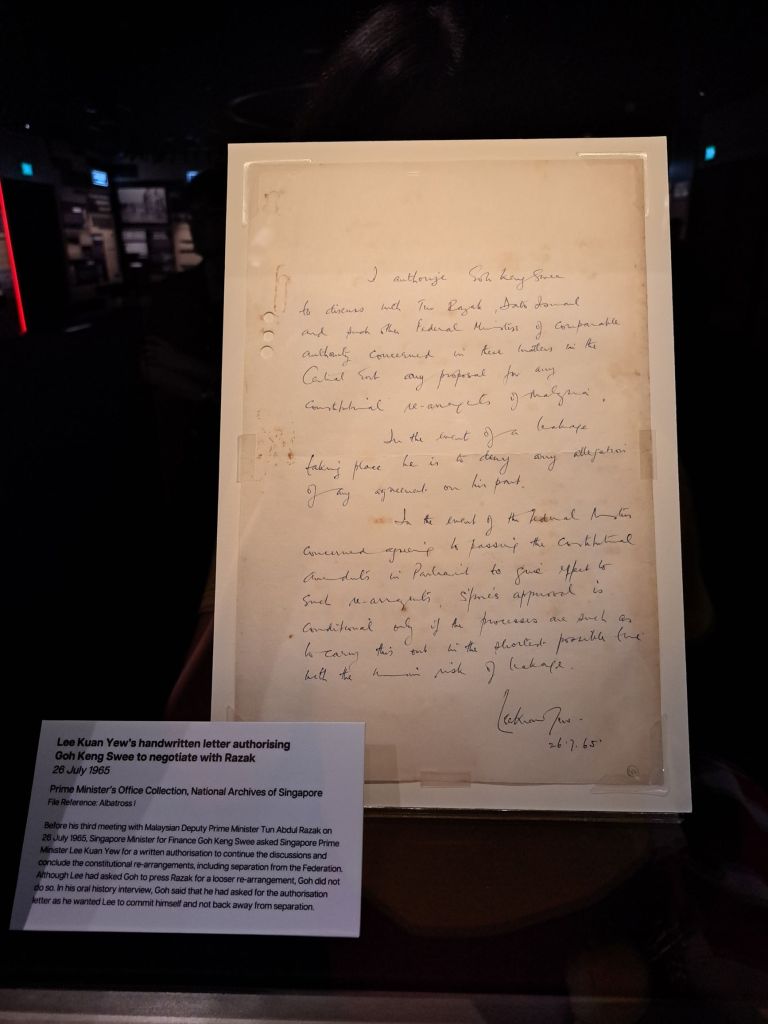 I authorise Goh Keng Swee
to discuss with Tun Razak, Dato Ismail
and such other Federal Ministers of comparable
authority concerned in these matters in the
Central Govt any proposal for any
constitutional re-arrangements of Malaysia.
In the event of a leakage
taking place he is to deny any allegation
of any agreement on his part.
In the event of the Federal Ministers
concerned agreeing to passing the Constitutional
Amendments in Parliament to give effect to
such re-arrangements, S'pore's approval is
conditional only if the processes are such as
to carry this out in the shortest possible time
with the minimum risk of leakage.
Lee Kuan Yew
26.7.65
Lee Kuan Yew's handwritten letter authorising
Goh Keng Swee to negotiate with Razak
26 July 1965
Prime Minister's Office Collection, National Archives of Singapore
File Reference: Albatross I
Before his third meeting with Malaysian Deputy Prime Minister Tun Abdul Razak on
26 July 1965, Singapore Minister for Finance Goh Keng Swee asked Singapore Prime
Minister Lee Kuan Yew for a written authorisation to continue the discussions and
conclude the constitutional re-arrangements, including separation from the Federation.
Although Lee had asked Goh to press Razak for a looser re-arrangement, Goh did not
do so. In his oral history interview, Goh said that he had asked for the authorisation
letter as he wanted Lee to commit himself and not back away from separation.